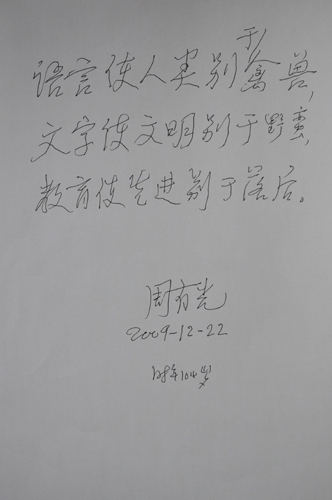 语言使人类别于禽兽,
文字使文明别于野蛮,
教育使先进别于落后。
周有光
2009-12-22
时年104岁